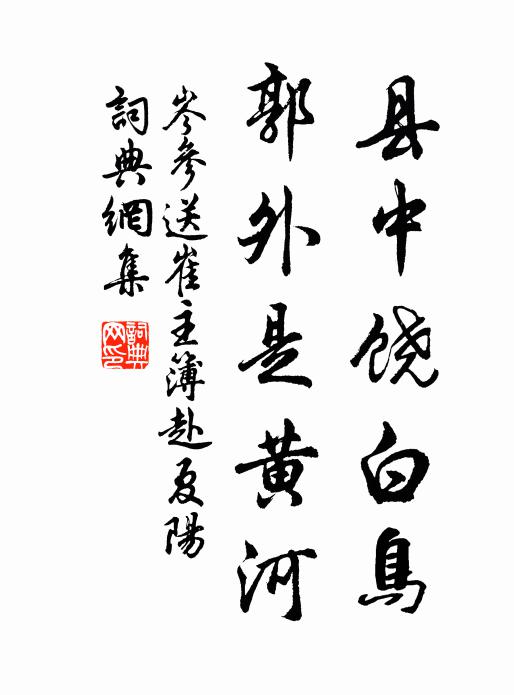 县中饶白鳥
郭外是黄河
岑參送崔主簿赴夏陽
詞典網集
詞典網印